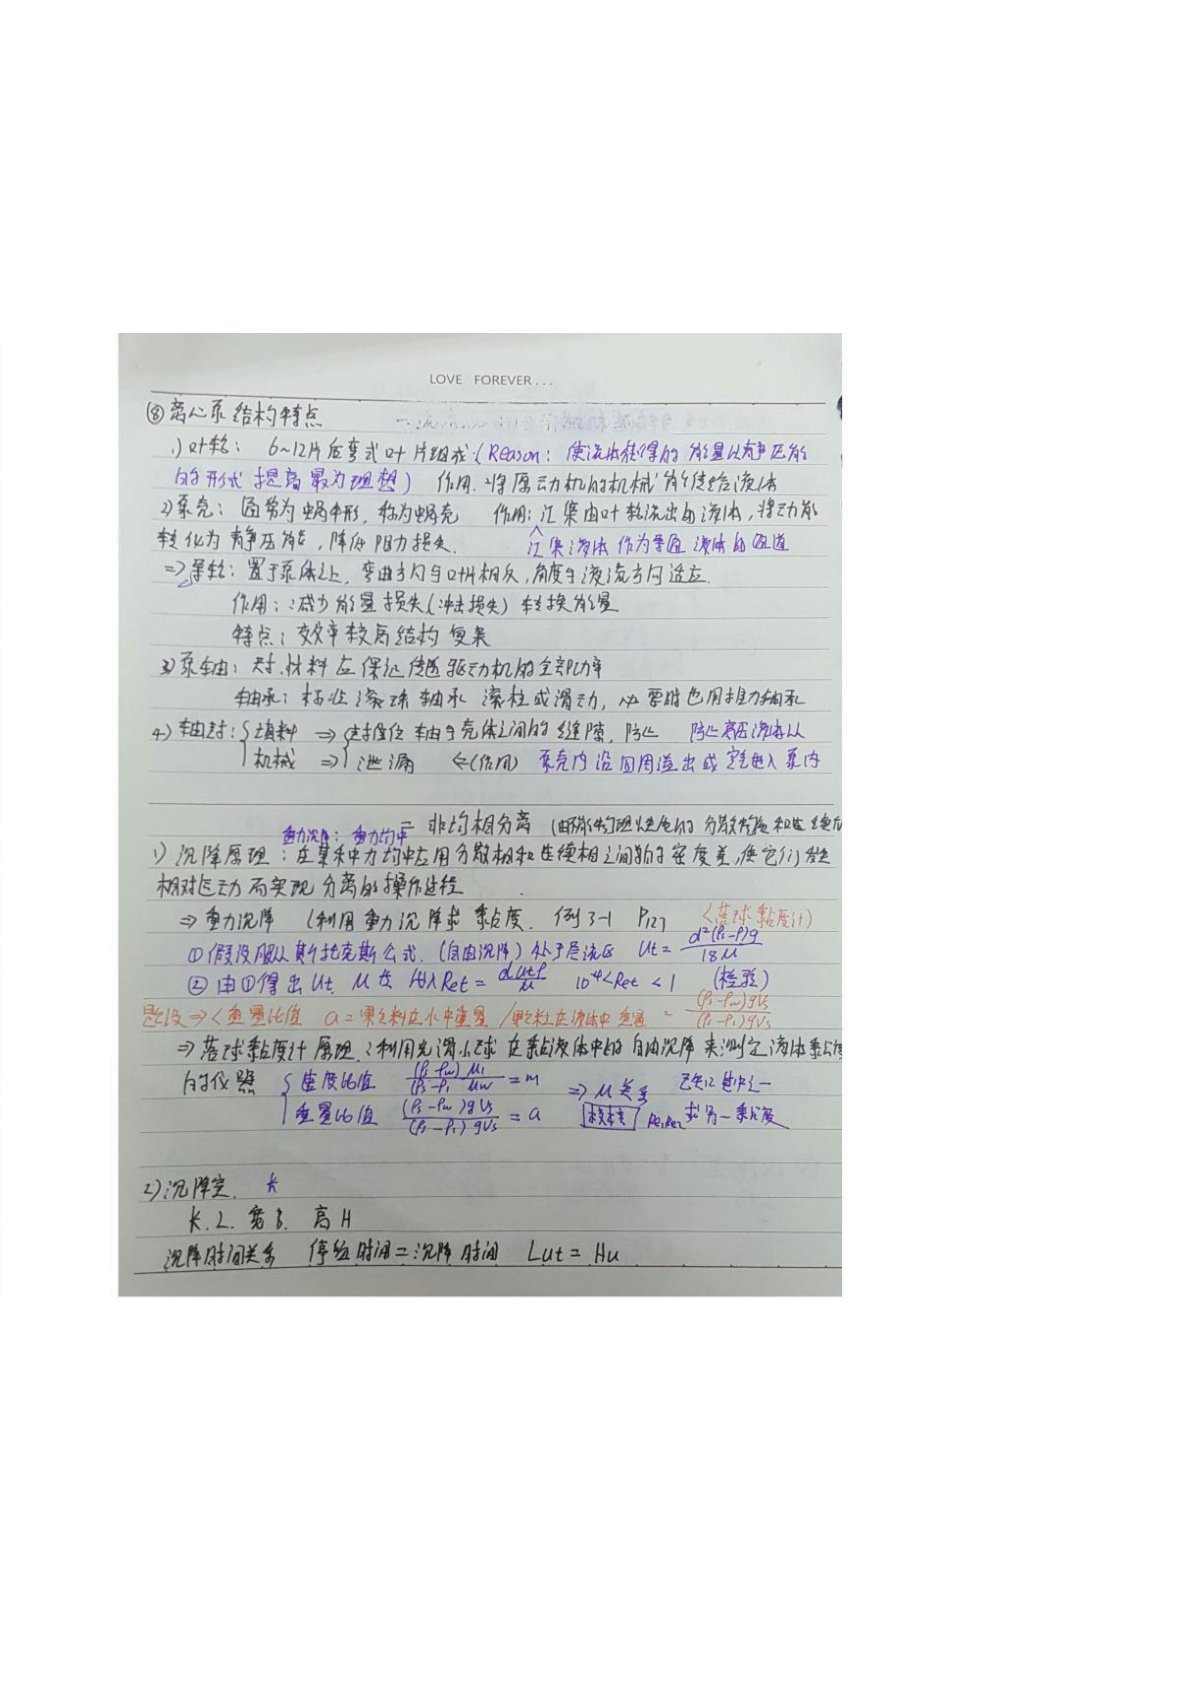 LOVE FOREVER...
⑧ 离心泵结构特点
1) 叶轮: 6~12片后弯式叶片组成 (Reason: 使流体获得的能量以静压能
的形式提高最为理想) 作用: 将原动机的机械能传给液体
2) 泵壳: 通常为蜗牛形, 称为蜗壳 作用: 汇集由叶轮流出的液体, 将动能
转化为静压能, 降低阻力损失. 汇集液体 作为导通液体的通道
=> 导轮: 置于泵体上, 弯曲方向与叶片相反, 角度与液流方向适应.
作用: 减少能量损失(冲击损失) 转换能量
特点: 效率较高 结构复杂
3) 泵轴: 尺寸. 材料应保证传递驱动机的全部功率
轴承: 标准滚珠轴承 滚柱或滑动, 必要时也用推力轴承
4) 轴封: { 填料 => { 封堵住轴与壳体之间的缝隙, 防止 防止高压液体从
机械 => 泄漏 <=(作用) 泵壳内沿四周溢出或空气进入泵内
二 非均相分离 (由物理性质的分散物质和连续
重力沉降: 重力场中
1) 沉降原理: 在某种力场中应用分散相和连续相之间的密度差, 使它们发生
相对运动而实现分离的操作过程
=> 重力沉降 (利用重力沉降求黏度. 例3-1 P127 <落球黏度计)
① 假设服从斯托克斯公式. (自由沉降) 处于层流区 Ut = d²(ρs-ρ)g / 18μ
② 由①得出 Ut. μ 代入 Ret = dUtρ/μ 10⁻⁴<Ret<1 (检验)
题设 => <重量比值 a = 颗粒在水中重量 / 颗粒在液体中重量 = (ρs-ρw)gVs / (ρs-ρ1)gVs
=> 落球黏度计原理: 利用光滑小球在黏液体中的自由沉降来测定液体黏度
的仪器 { 速度比值 (ρs-ρw)μ1 / (ρs-ρ1)μw = m => μ关系 已知其中之一
重量比值 (ρs-ρw)gVs / (ρs-ρ1)gVs = a 校核 Re1Re2 求另一黏度
2) 沉降室. 长
长. L. 宽 B. 高 H
沉降时间关系 停留时间 = 沉降时间 Lut = Hu